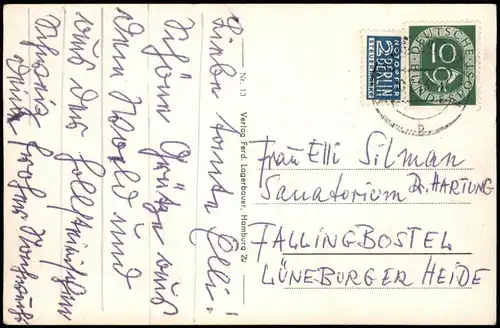 Liebe Tante Elli!
Schöne Grüße aus
dem Wald und
aus der Holsteinischen
Schweiz
Nr. 13 Verlag Ferd. Lagerbauer, Hamburg 20
NOTOPFER
2 BERLIN
STEUERMARKE
DEUTSCHE
10
BUNDESPOST
b
Frau Elli Silman
Sanatorium Dr. HARTUNG
FALLINGBOSTEL
LÜNEBURGER HEIDE